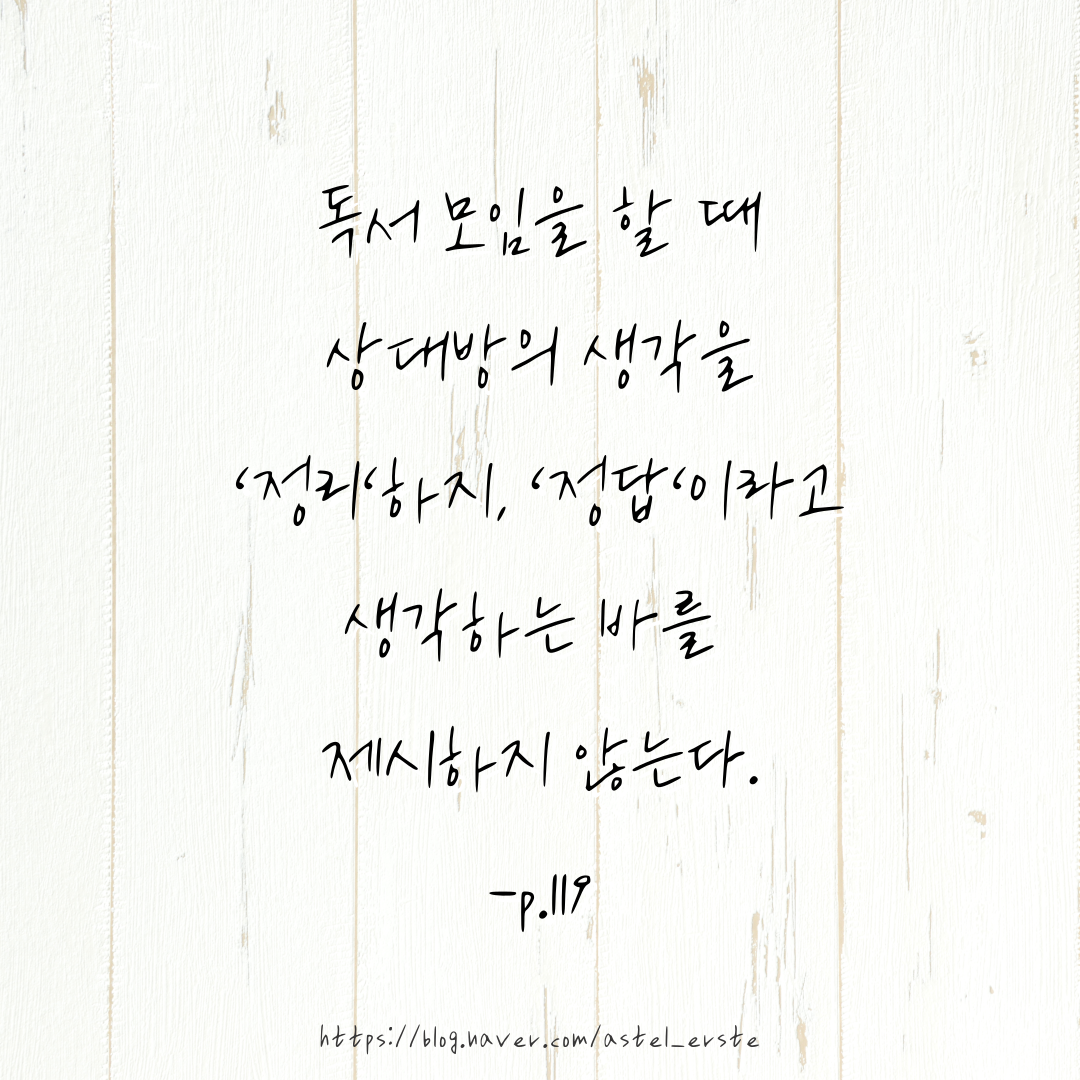 독서 모임을 할 때
상대방의 생각을
‘정리‘하지, ‘정답‘이라고
생각하는 바를
제시하지 않는다.
-p.119
https://blog.naver.com/astel_erste